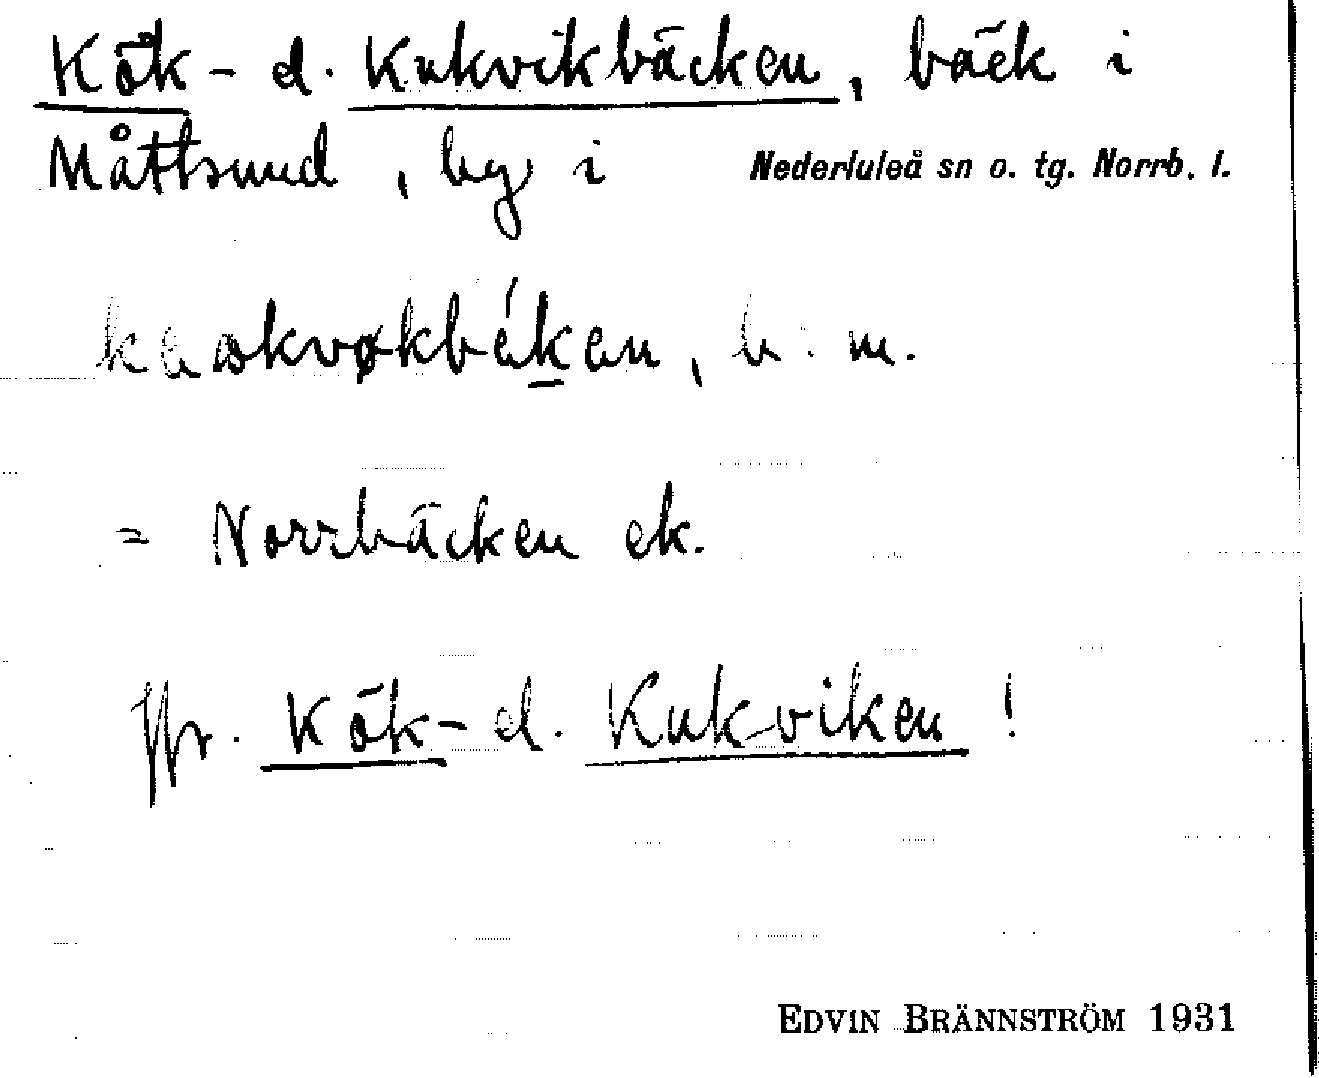 Kök- el. Kukvikbäcken, bäck i
Måttsund, by i Nederluleå sn o. tg. Norrb. l.
b. m.
= Norrbäcken ek.
Jfr. Kök- el. Kukviken!
EDVIN BRÄNNSTRÖM 1931